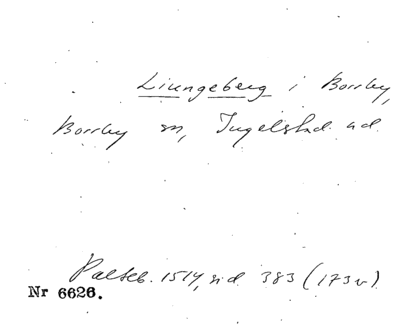 Liungeberg i Borrby,
Borrby sn, Ingelstad hd.
Palteb. 1514, sid. 383 (173 v)
Nr 6626.